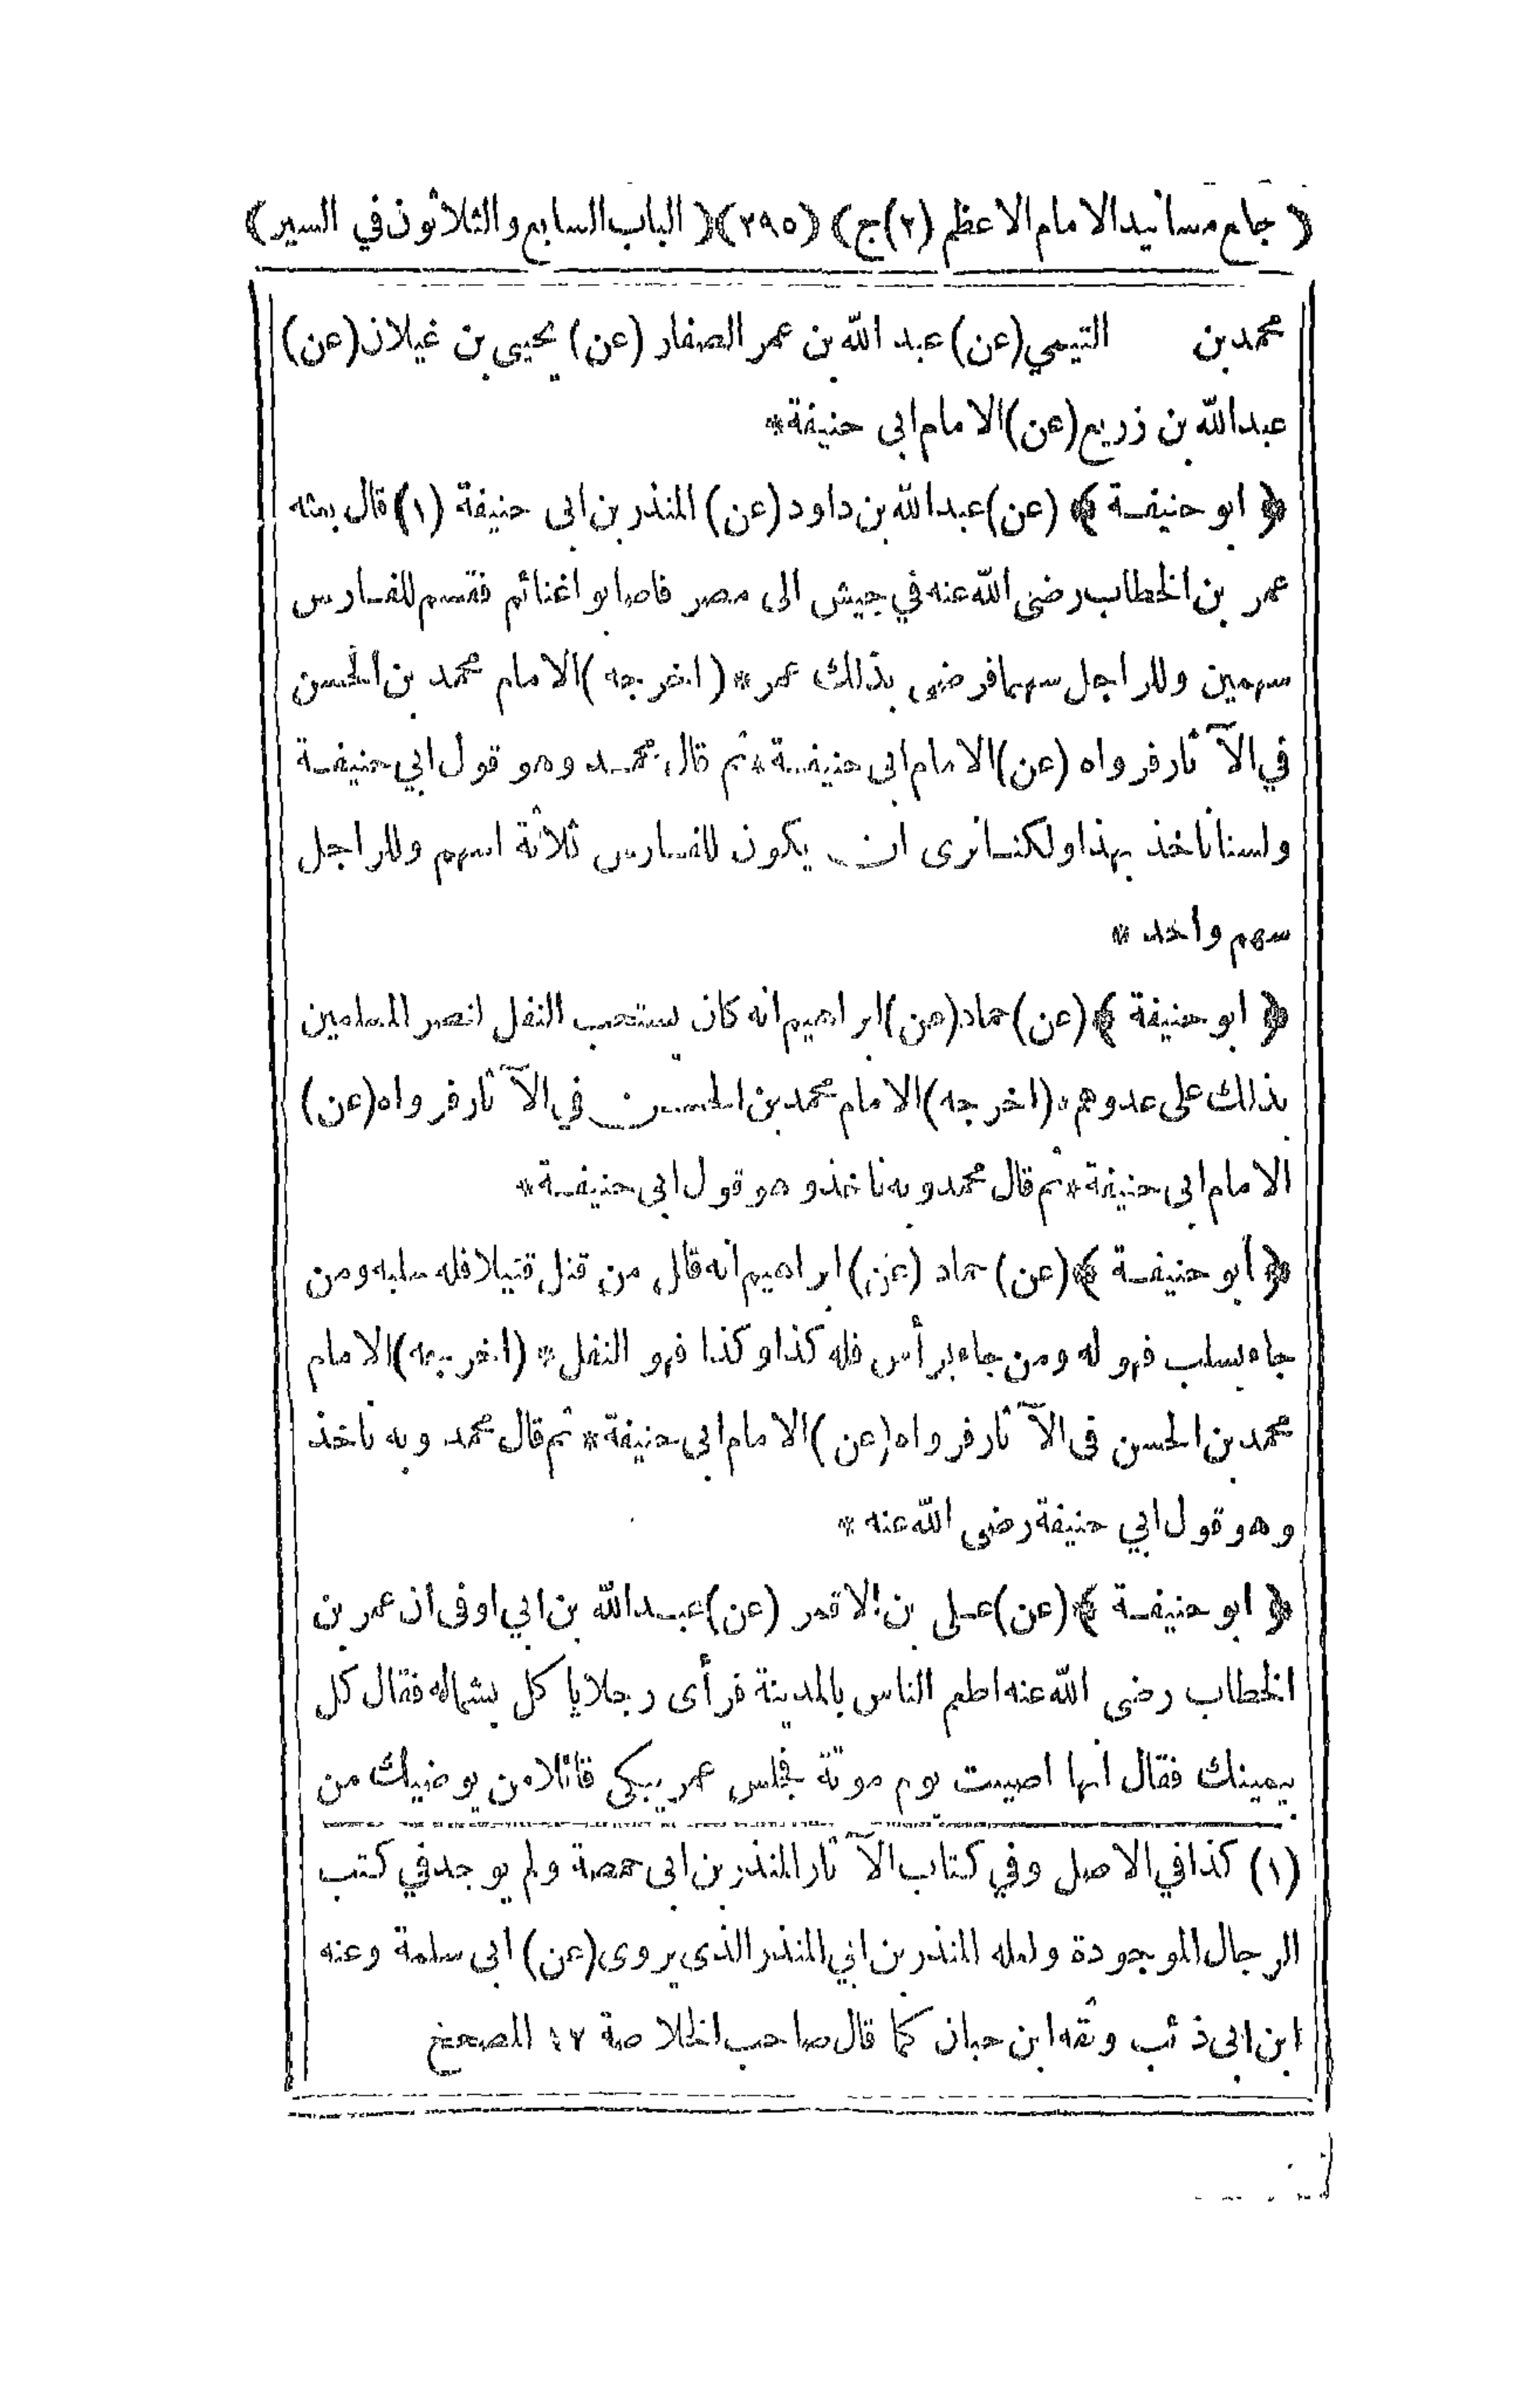 ﴿ جامع مسانيد الامام الاعظم (٢)ج﴾ (٢٩٥) ﴿ الباب السابع والثلاثون في السير﴾
محمد بن التيمي (عن) عبد الله بن عمر الصفار (عن) يحيى بن غيلان (عن)
عبد الله بن زريع (عن) الامام ابى حنيفة *
﴿ ابو حنيفة ﴾ (عن) عبد الله بن داود (عن) المنذر بن ابى حنيفة (١) قال بعثه
عمر بن الخطاب رضى الله عنه في جيش الى مصر فاصابوا غنائم فقسم للفارس
سهمين وللراجل سهما فرضى بذلك عمر * (اخرجه) الامام محمد بن الحسن
في الآثار فرواه (عن) الامام ابى حنيفة * ثم قال محمد وهو قول ابي حنيفة
ولسنا ناخذ بهذا ولكنا نرى ان يكون للفارس ثلاثة اسهم وللراجل
سهم واحد *
﴿ ابو حنيفة ﴾ (عن) حماد (عن) ابراهيم انه كان يستحب النفل لنصر المسلمين
بذلك على عدوهم * (اخرجه) الامام محمد بن الحسن في الآثار فرواه (عن)
الامام ابى حنيفة * ثم قال محمد وبه ناخذ وهو قول ابى حنيفة *
﴿ أبو حنيفة ﴾ (عن) حماد (عن) ابراهيم انه قال من قتل قتيلا فله سلبه ومن
جاء بسلب فهو له ومن جاء برأس فله كذا وكذا فهو النفل * (اخرجه) الامام
محمد بن الحسن فى الآثار فرواه (عن) الامام ابى حنيفة * ثم قال محمد وبه ناخذ
وهو قول ابي حنيفة رضى الله عنه *
﴿ ابو حنيفة ﴾ (عن) على بن الاقمر (عن) عبد الله بن ابي اوفى ان عمر بن
الخطاب رضى الله عنه اطعم الناس بالمدينة فرأى رجلا ياكل بشماله فقال كل
بيمينك فقال انها اصيبت يوم موتة فجلس عمر يبكى قائلا من يوضيك من
(١) كذا في الاصل وفي كتاب الآثار المنذر بن ابى حمصة ولم يوجد في كتب
الرجال الموجودة ولعله المنذر بن ابي المنذر الذى يروى (عن) ابى سلمة وعنه
ابن ابى ذئب وثقه ابن حبان كما قال صاحب الخلاصة ١٢ المصحح